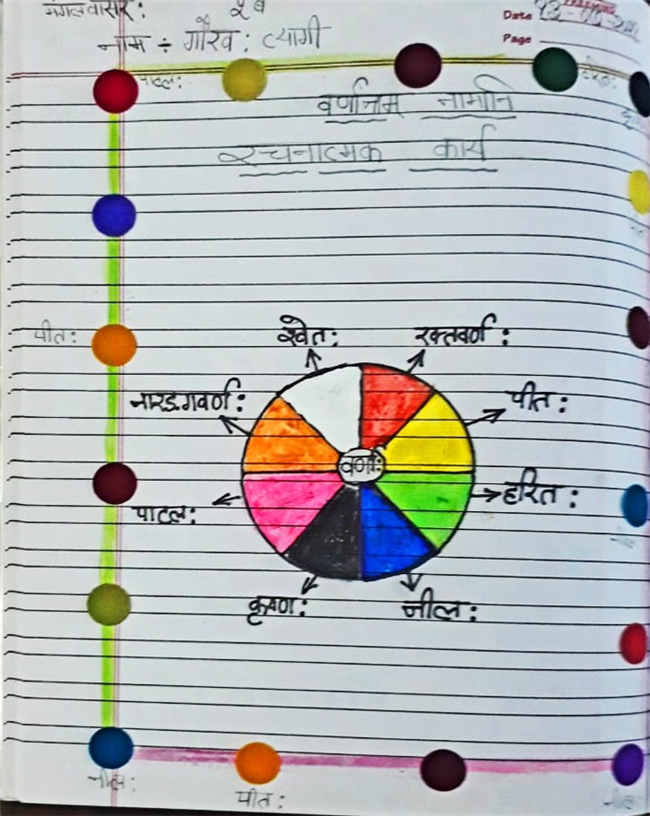 मंगलवासर:
नाम ÷ गौरव: त्यागी
Date
Page
पाटल:
हरित:
वर्णानाम् नामानि
रचनात्मक कार्य
पीत:
श्वेत:
रक्तवर्ण:
नारङगवर्ण:
पीत:
वर्णा:
हरित:
पाटल:
कृष्ण:
नील:
नील:
पीत:
नील: